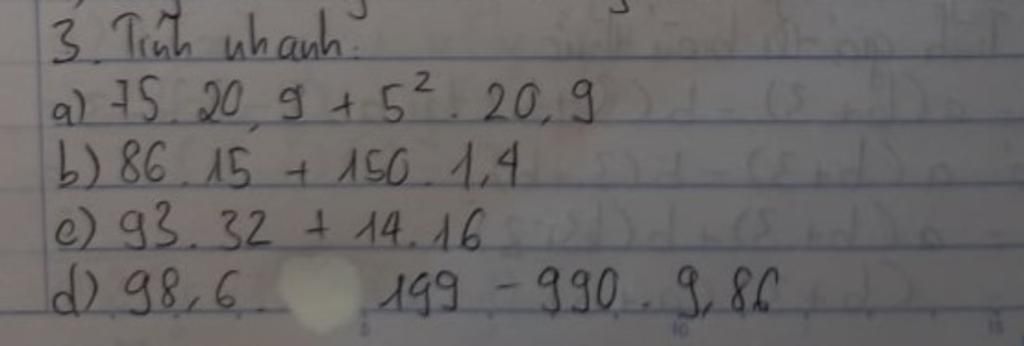 3. Tính nhanh:
a) 75. 20,9 + 5². 20,9
b) 86.15 + 150.1,4
c) 93.32 + 14.16
d) 98,6. 199 - 990. 9,86